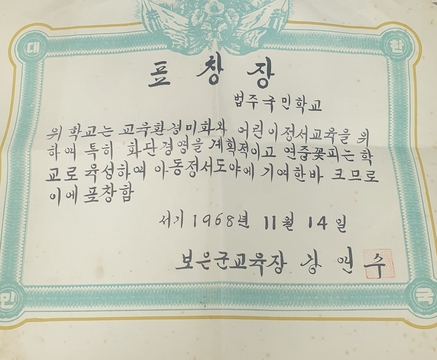 대 한
표 창 장
법주국민학교
위 학교는 교육환경미화와 어린이정서교육을 위
하여 특히 화단경영을 계획적이고 연중꽃피는 학
교로 육성하여 아동정서도야에 기여한바 크므로
이에 표창함
서기 1968년 11월 14일
보은군교육장 강 민 수
민 국